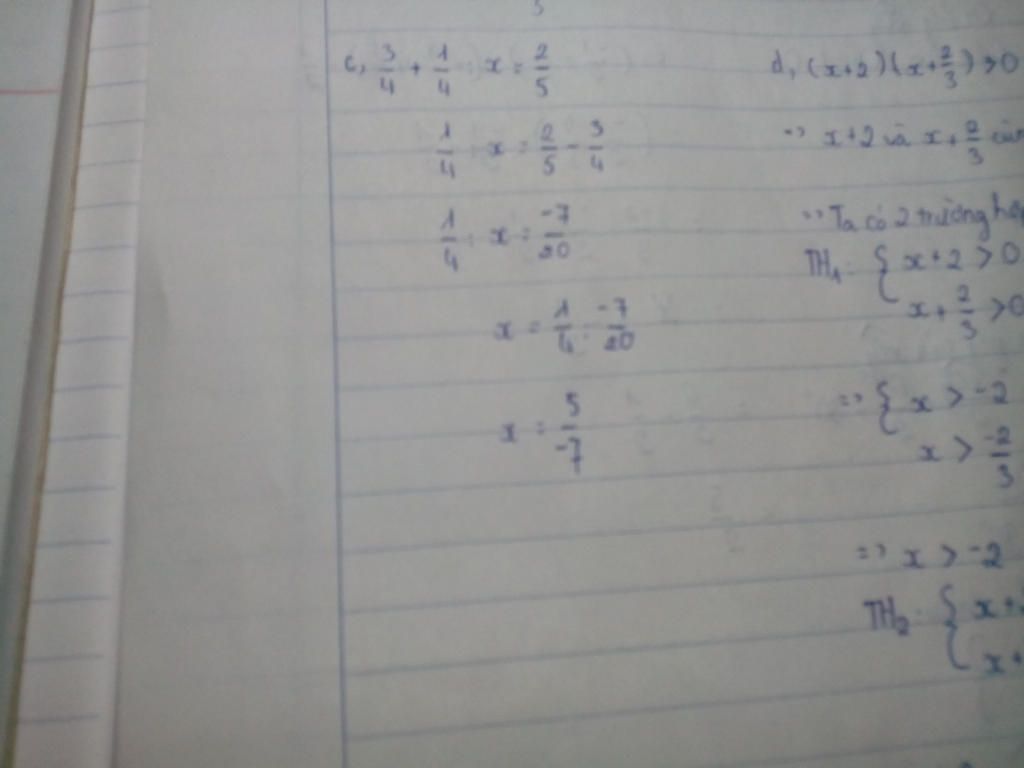 c, 3/4 + 1/4 : x = 2/5
1/4 : x = 2/5 - 3/4
1/4 : x = -7/20
x = 1/4 : -7/20
x = 5/-7
d, (x+2)(x+2/3) > 0
=> x+2 và x+2/3
=> Ta có 2 trường hợp
TH1: { x+2 > 0
x+2/3 > 0
=> { x > -2
x > -2/3
=> x > -2
TH2: { x+
x+